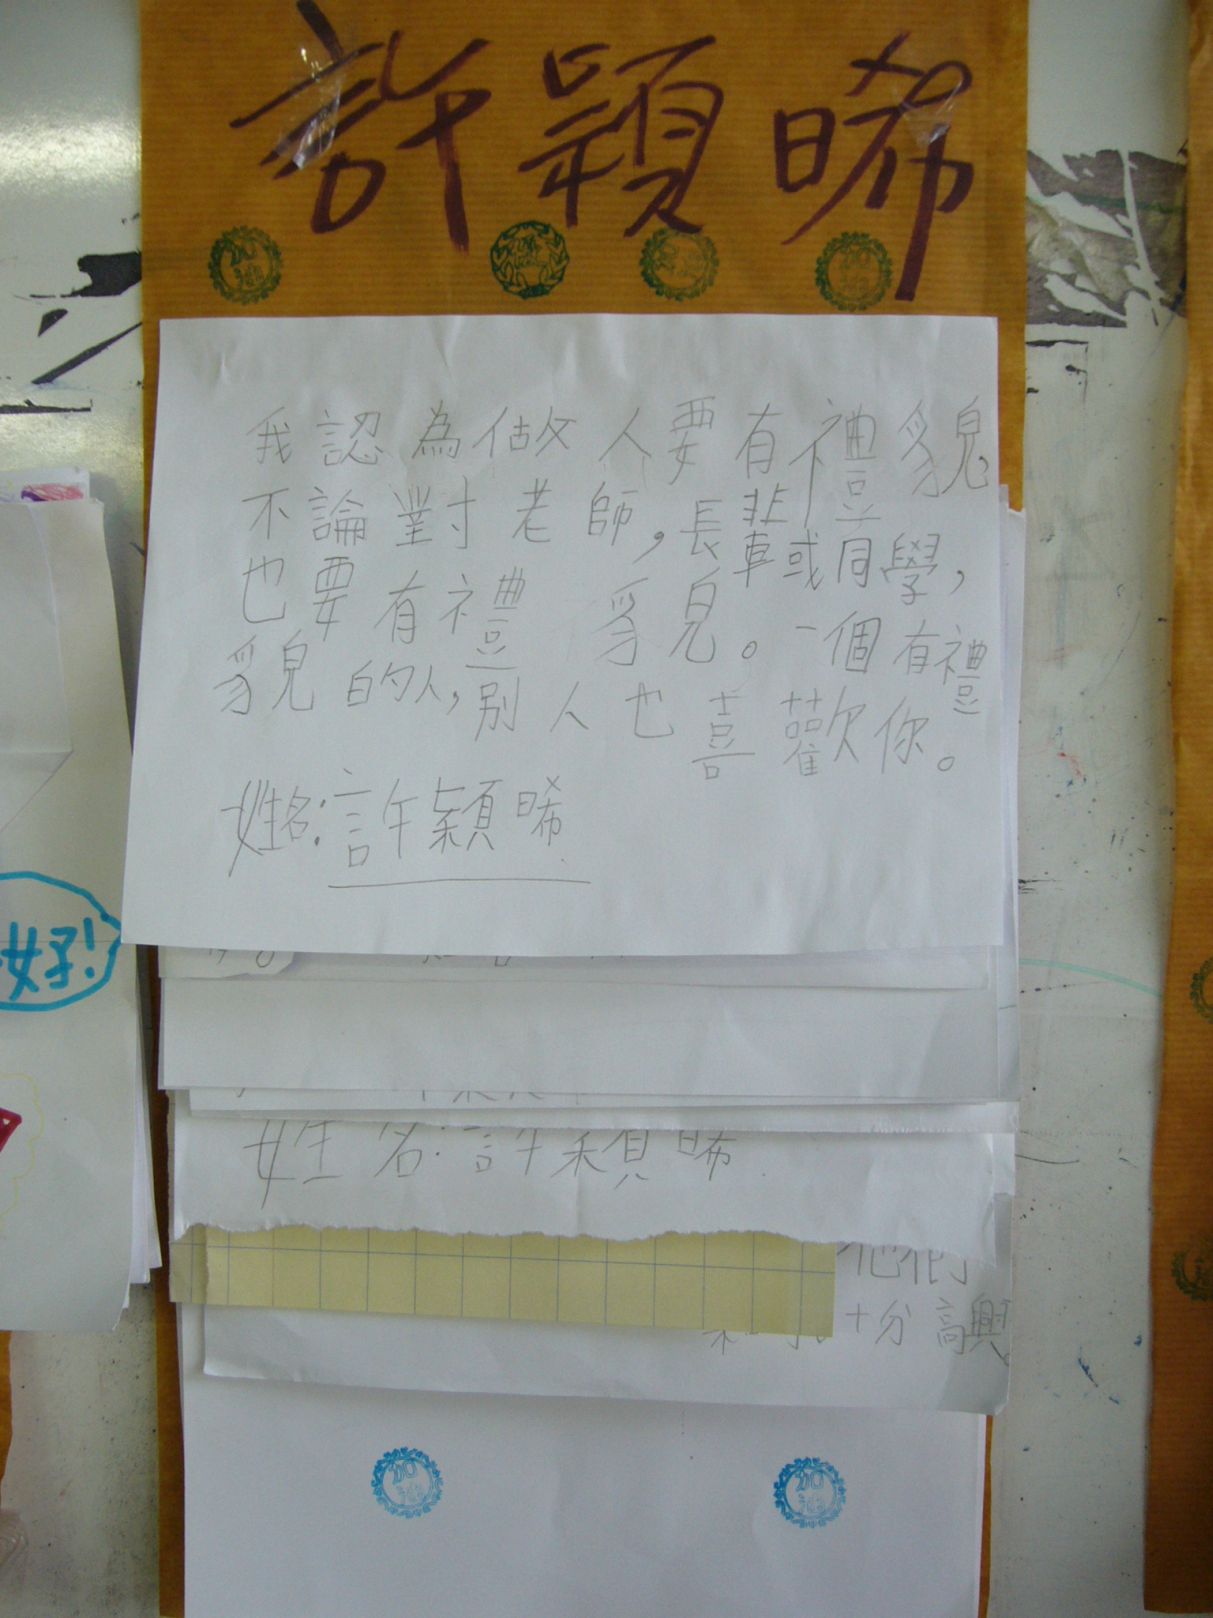 許穎晞
加油
加油
我認為做人要有禮貌,
不論對老師,長輩或同學,
也要有禮貌。一個有禮
貌的人,別人也喜歡你。
姓名:許穎晞
好!
姓名:許穎晞
他們
十分高興。
加油
加油